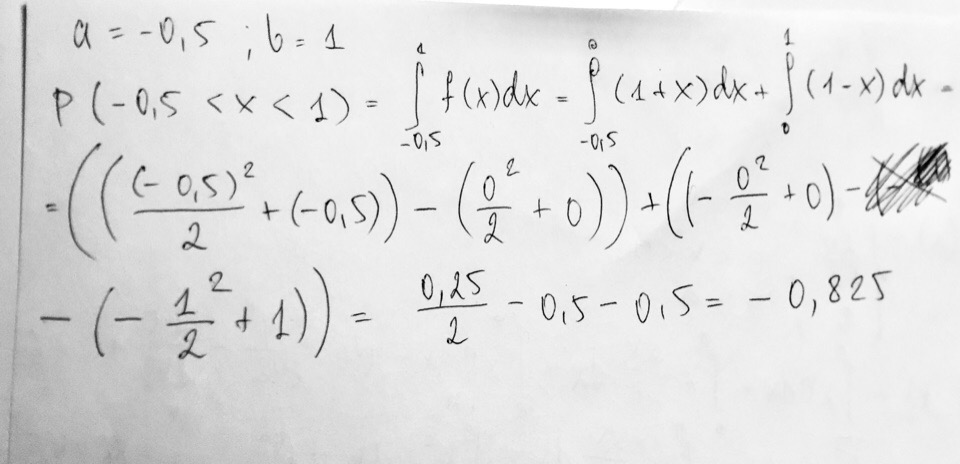 a = -0,5 ; b = 1
P (-0,5 < x < 1) = ∫_{-0,5}^{1} f(x)dx = ∫_{-0,5}^{0} (1+x)dx + ∫_{0}^{1} (1-x)dx =
= (((-0,5)²/2 + (-0,5)) - (0²/2 + 0)) + ((-0²/2 + 0) -
- (-1²/2 + 1)) = 0,25/2 - 0,5 - 0,5 = - 0,825